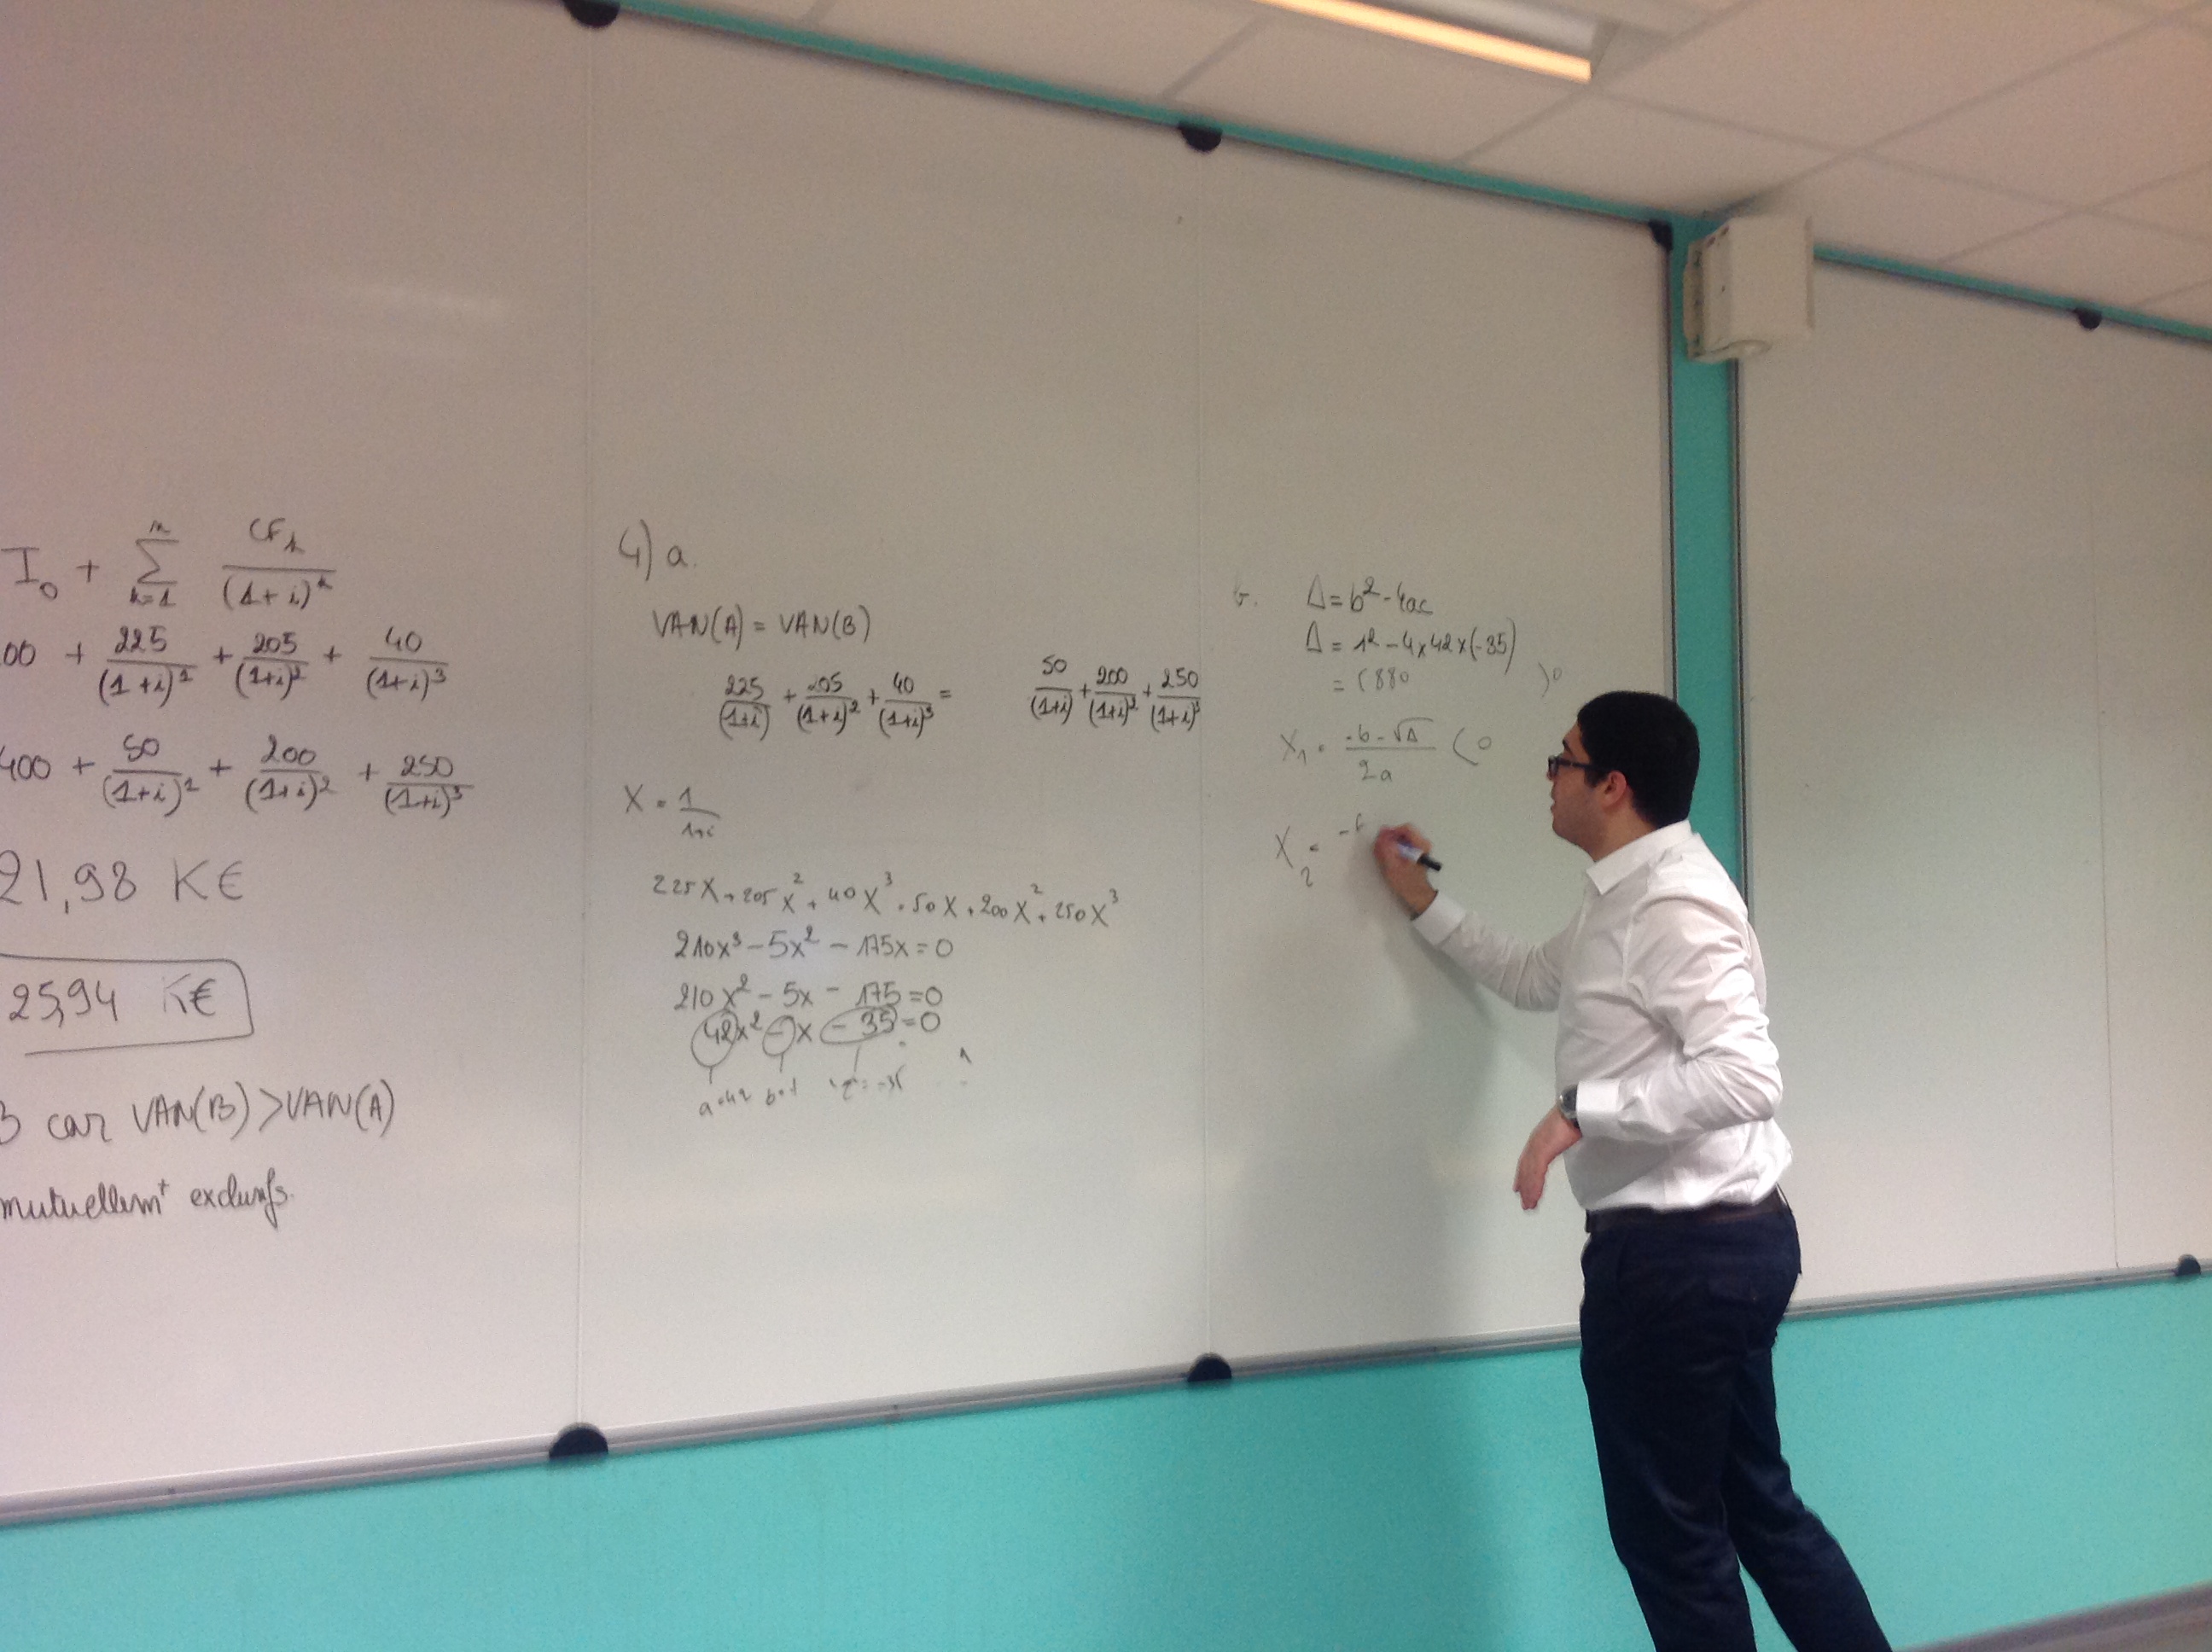 I₀ + Σ (k=1, n) CF₁/(1+i)ᵏ
00 + 225/(1+i)¹ + 205/(1+i)² + 40/(1+i)³
400 + 50/(1+i)¹ + 200/(1+i)² + 250/(1+i)³
21,98 K€
25,94 K€
B car VAN(B) > VAN(A)
mutuellemt exclusifs.
4) a.
VAN(A) = VAN(B)
225/(1+i) + 205/(1+i)² + 40/(1+i)³ = 50/(1+i) + 200/(1+i)² + 250/(1+i)³
X = 1/(1+i)
225X + 205X² + 40X³ = 50X + 200X² + 250X³
210x³ - 5x² - 175x = 0
210x² - 5x - 175 = 0
42x² - x - 35 = 0
a=42
b.
Δ = b² - 4ac
Δ = 1² - 4×42×(-35)
X₁ = (-b - √Δ)/2a < 0
X₂ = -b